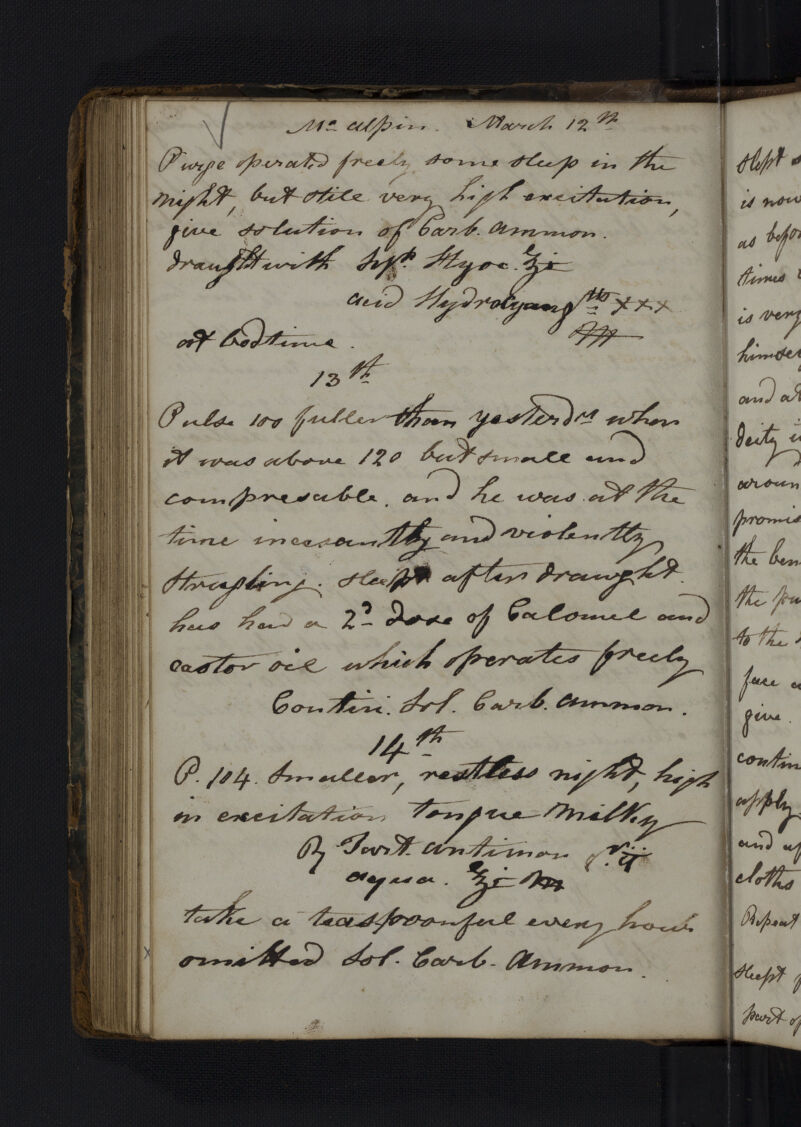 Mc alpin. March 12th
Purge operated freely some sleep in the
night, but stile very high excitation,
give solution of Carb. Ammon.
draught with Hyoc. ʒi
acid Hydrocyang xxx
at bedtime.
13th
Pulse 100 fuller than yesterdy when
it was above 120 but smale and
compresable. and he was at the
time incesantly and violently
strugling. sleept after draught.
has had a 2d dose of Calomel and
castor oil which operates freely
Contin. Sol. Carb. Ammon.
14th
P. 104. Smaller, restless night, high
in excitation tongue Milky
℞ Tart. antimon
aqua. ʒi
take a teaspoonful every hour
omitted Sol. Carb. Ammon.
slept
is now
as befo
times
is very
himse
and a
deity
aroun
promis
the
the
to the
face
give.
contin
apply
and
cloths
Repeat
sleept
part of